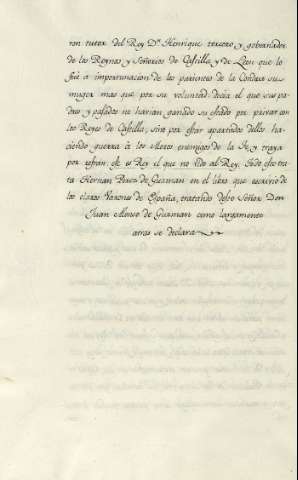 ron tutor del Rey Dⁿ. Henrique tercero y gobernador
de los Reynos y Señorios de Castilla y de Leon que lo
fué a importunacion de los parientes de la Condesa su
muger mas que por su voluntad decia el que sus pa-
dres y pasados no harian ganado su estado por privar con
los Reyes de Castilla, sino por estar apartados dellos ha-
ciendo guerra à los Moros enemigos de la Fe, y traya
por refran, ese es Rey el que no vido al Rey. Todo esto tra-
ta Hernan Perez de Guzman en el libro que escrivió de
los claros Varones de España, tratando deste Señor Don
Juan Alonso de Guzman como largamente
atras se declara